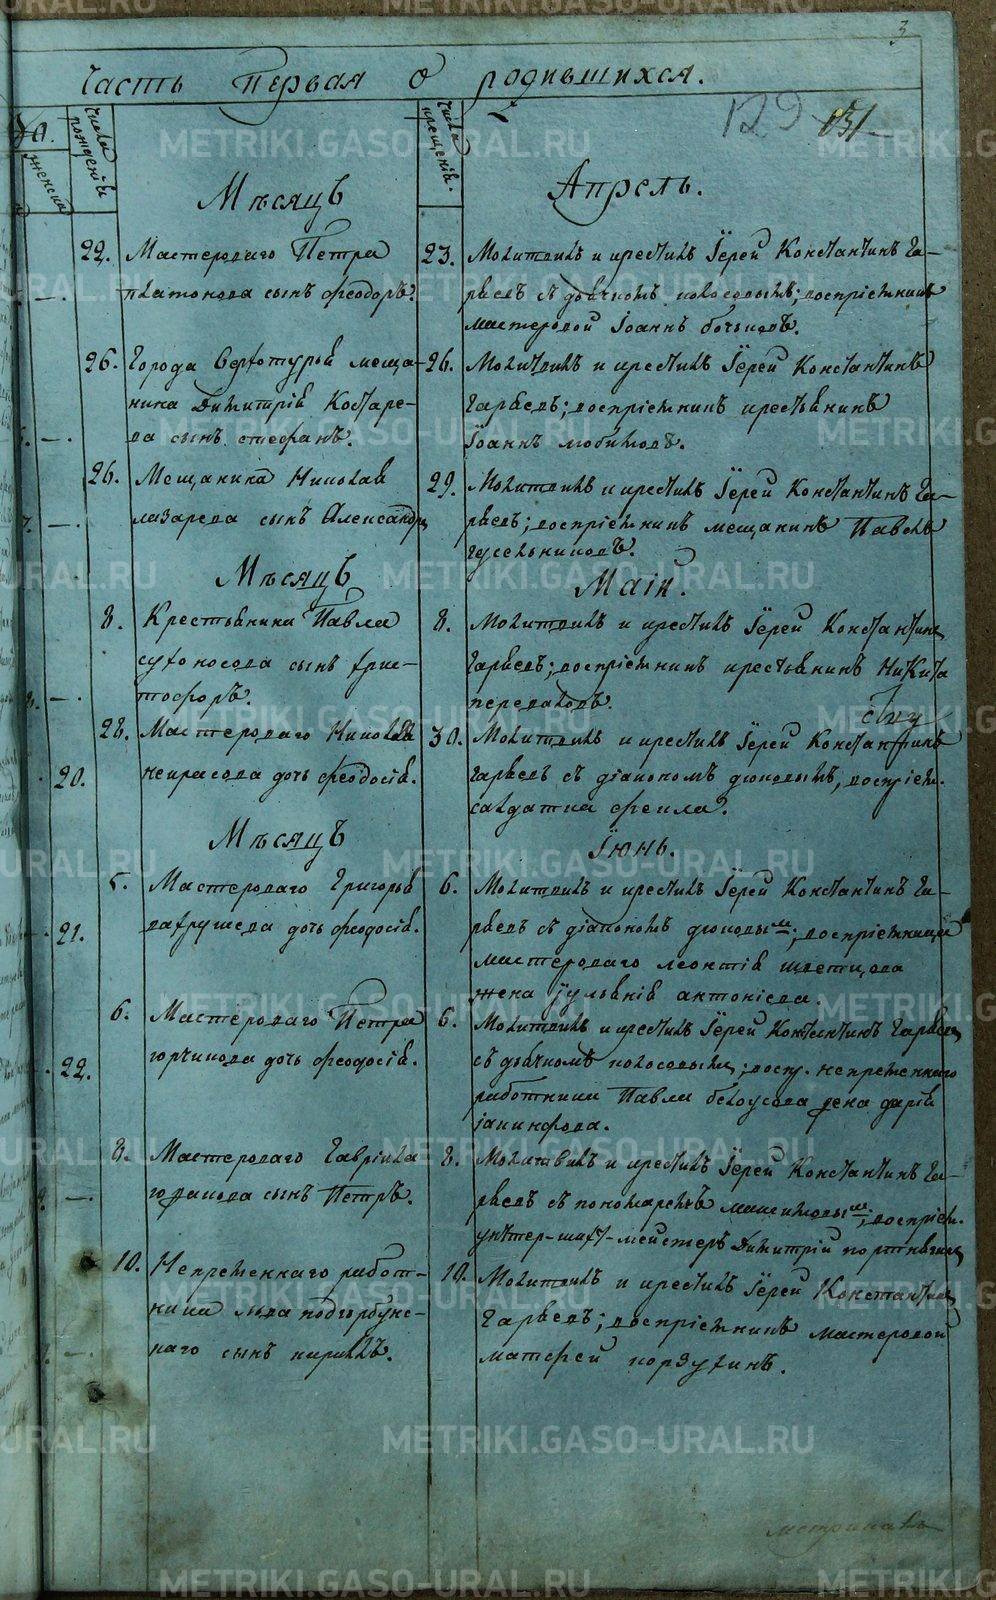 3
Часть Первая о родившихся.
129 131
женска
Числа рожденія
Числа крещенія.
Мѣсяцъ Апрель.
22. Мастероваго Петра
Платонова сынъ Феодоръ.
23. Молитвилъ и крестилъ Іерей Константинъ Га-
ряевъ съ дьячкомъ ; воспріемникъ
мастеровой Іоаннъ
26. Города Верхотурья меща-
нина Димитрія Костаре-
ва сынъ Стефанъ.
26. Молитвилъ и крестилъ Іерей Константинъ
Гаряевъ; воспріемникъ крестьянинъ
Іоаннъ Любимовъ.
26. Мещанина Николая
Лазарева сынъ Александръ
29. Молитвилъ и крестилъ Іерей Константинъ Га-
ряевъ; воспріемникъ мещанинъ Павелъ
Гусельниковъ.
Мѣсяцъ Маій.
8. Крестьянина Павла
Сухоносова сынъ Хрис-
тофоръ.
8. Молитвилъ и крестилъ Іерей Константинъ
Гаряевъ; воспріемникъ крестьянинъ Никита
Переваловъ.
20.
28. Мастероваго Николая
Некрасова дочь Феодосія.
30. Молитвилъ и крестилъ Іерей Константинъ
Гаряевъ съ діакономъ Дюковымъ, воспріем.
салдатка Фекла.
Мѣсяцъ Іюнь.
21.
5. Мастероваго Григорья
Вахрушева дочь Феодосія.
6. Молитвилъ и крестилъ Іерей Константинъ Га-
ряевъ съ діакономъ Дюковымъ; воспріемница
мастероваго Леонтія Швецова
жена Іульянія Антоніева.
22.
6. Мастероваго Петра
Горчакова дочь Феодосія.
6. Молитвилъ и крестилъ Іерей Константинъ Гаряевъ
съ дьячкомъ ; воспр. непременнаго
работника Павла Белоусова жена Дарія
Іакинфова.
8. Мастероваго Гавріила
сынъ Петръ.
8. Молитвилъ и крестилъ Іерей Константинъ Га-
ряевъ съ пономаремъ ; воспріем.
унтер-шахт-мейстеръ Димитрій Портнягинъ
10. Непременнаго работ-
ника Льва Подгорбунс-
каго сынъ Кириллъ.
10. Молитвилъ и крестилъ Іерей Константинъ
Гаряевъ; воспріемникъ мастеровой
Матфей Корзухинъ.
METRIKI.GASO-URAL.RU